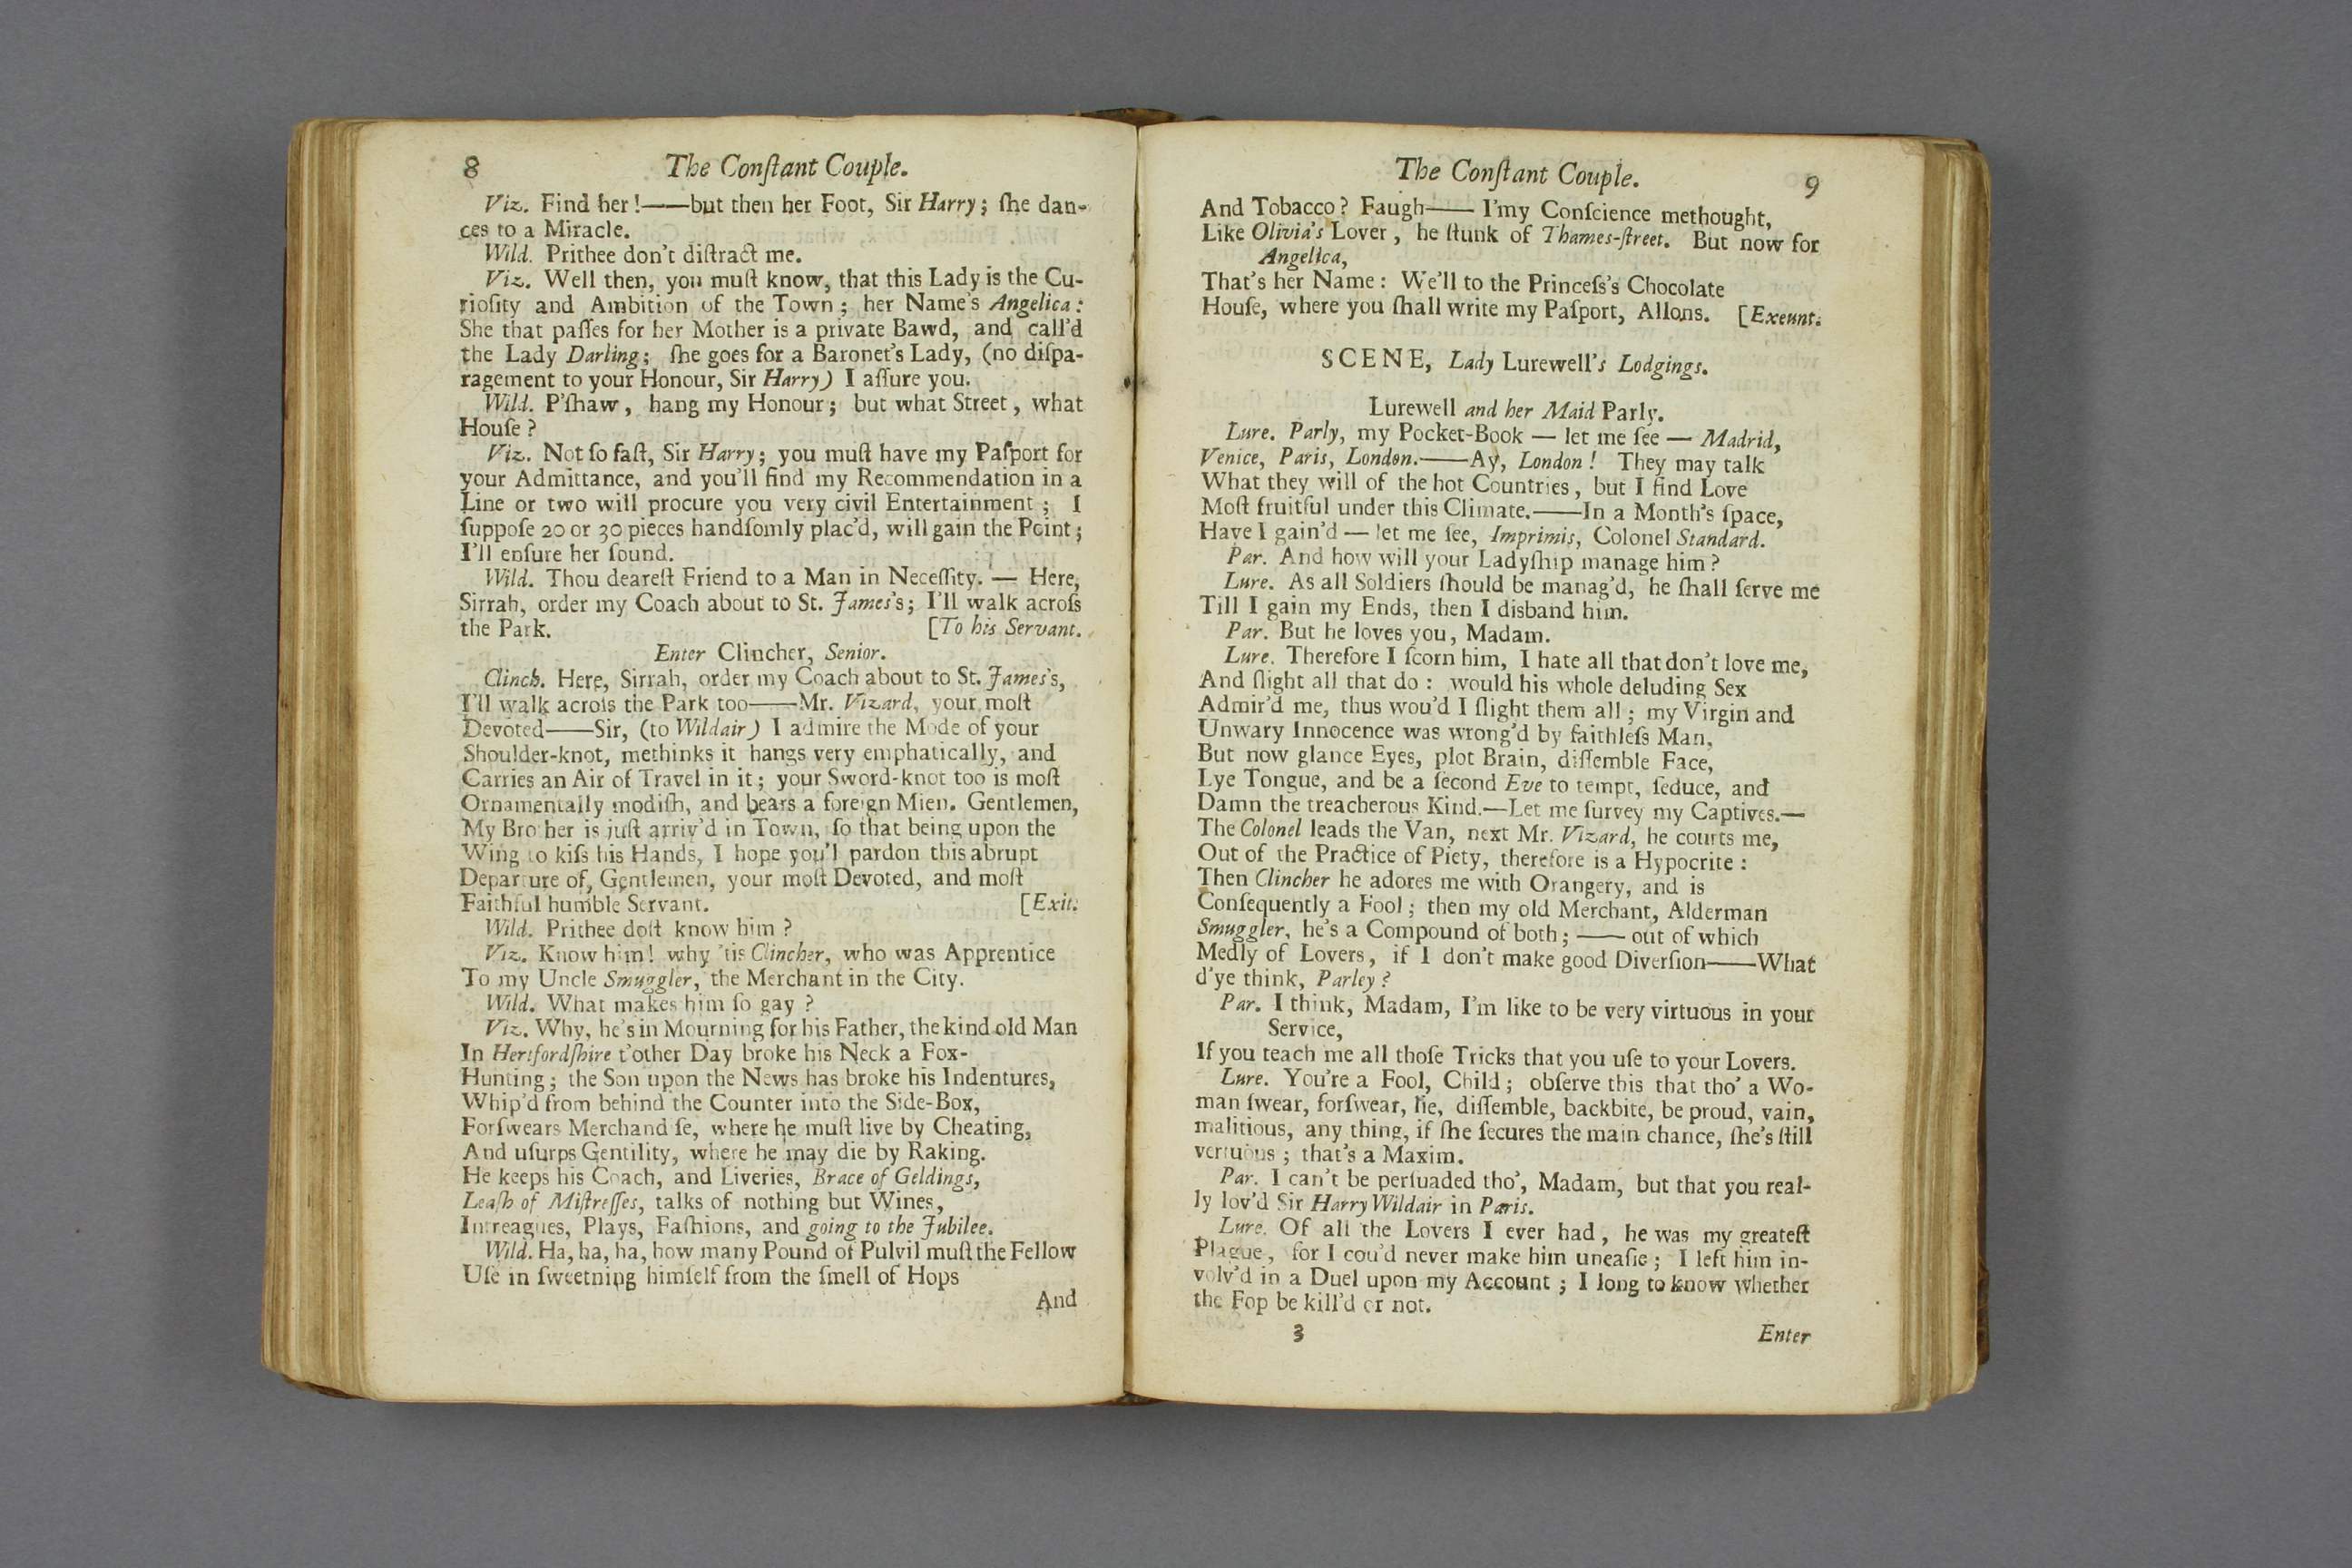 8 The Conſtant Couple.
Viz. Find her!——but then her Foot, Sir Harry; ſhe dan-
ces to a Miracle.
Wild. Prithee don't diſtract me.
Viz. Well then, you muſt know, that this Lady is the Cu-
rioſity and Ambition of the Town; her Name's Angelica:
She that paſſes for her Mother is a private Bawd, and call'd
the Lady Darling; ſhe goes for a Baronet's Lady, (no diſpa-
ragement to your Honour, Sir Harry) I aſſure you.
Wild. P'ſhaw, hang my Honour; but what Street, what
Houſe?
Viz. Not ſo faſt, Sir Harry; you muſt have my Paſport for
your Admittance, and you'll find my Recommendation in a
Line or two will procure you very civil Entertainment; I
ſuppoſe 20 or 30 pieces handſomly plac'd, will gain the Point;
I'll enſure her ſound.
Wild. Thou deareſt Friend to a Man in Neceſſity. — Here,
Sirrah, order my Coach about to St. James's; I'll walk acroſs
the Park. [To his Servant.
Enter Clincher, Senior.
Clinch. Here, Sirrah, order my Coach about to St. James's,
I'll walk acroſs the Park too——Mr. Vizard, your moſt
Devoted——Sir, (to Wildair) I admire the Mode of your
Shoulder-knot, methinks it hangs very emphatically, and
Carries an Air of Travel in it; your Sword-knot too is moſt
Ornamentally modiſh, and bears a foreign Mien. Gentlemen,
My Brother is juſt arriv'd in Town, ſo that being upon the
Wing to kiſs his Hands, I hope you'l pardon this abrupt
Departure of, Gentlemen, your moſt Devoted, and moſt
Faithful humble Servant. [Exit.
Wild. Prithee doſt know him?
Viz. Know him! why 'tis Clincher, who was Apprentice
To my Uncle Smuggler, the Merchant in the City.
Wild. What makes him ſo gay?
Viz. Why, he's in Mourning for his Father, the kind old Man
In Hertfordſhire t'other Day broke his Neck a Fox-
Hunting; the Son upon the News has broke his Indentures,
Whip'd from behind the Counter into the Side-Box,
Forſwears Merchandiſe, where he muſt live by Cheating,
And uſurps Gentility, where he may die by Raking.
He keeps his Coach, and Liveries, Brace of Geldings,
Leaſh of Miſtreſſes, talks of nothing but Wines,
Intreagues, Plays, Faſhions, and going to the Jubilee.
Wild. Ha, ha, ha, how many Pound of Pulvil muſt the Fellow
Uſe in ſweetning himſelf from the ſmell of Hops
And
The Conſtant Couple. 9
And Tobacco? Faugh—— I'my Conſcience methought,
Like Olivia's Lover, he ſtunk of Thames-ſtreet. But now for
Angelica,
That's her Name: We'll to the Princeſs's Chocolate
Houſe, where you ſhall write my Paſport, Allons. [Exeunt.
SCENE, Lady Lurewell's Lodgings.
Lurewell and her Maid Parly.
Lure. Parly, my Pocket-Book — let me ſee — Madrid,
Venice, Paris, London.——Ay, London! They may talk
What they will of the hot Countries, but I find Love
Moſt fruitful under this Climate.——In a Month's ſpace,
Have I gain'd — let me ſee, Imprimis, Colonel Standard.
Par. And how will your Ladyſhip manage him?
Lure. As all Soldiers ſhould be manag'd, he ſhall ſerve me
Till I gain my Ends, then I disband him.
Par. But he loves you, Madam.
Lure. Therefore I ſcorn him, I hate all that don't love me,
And ſlight all that do: would his whole deluding Sex
Admir'd me, thus wou'd I ſlight them all; my Virgin and
Unwary Innocence was wrong'd by faithleſs Man,
But now glance Eyes, plot Brain, diſſemble Face,
Lye Tongue, and be a ſecond Eve to tempt, ſeduce, and
Damn the treacherous Kind.—Let me ſurvey my Captives.—
The Colonel leads the Van, next Mr. Vizard, he courts me,
Out of the Practice of Piety, therefore is a Hypocrite:
Then Clincher he adores me with Orangery, and is
Conſequently a Fool; then my old Merchant, Alderman
Smuggler, he's a Compound of both; —— out of which
Medly of Lovers, if I don't make good Diverſion——What
d'ye think, Parley?
Par. I think, Madam, I'm like to be very virtuous in your
Service,
If you teach me all thoſe Tricks that you uſe to your Lovers.
Lure. You're a Fool, Child; obſerve this that tho' a Wo-
man ſwear, forſwear, lie, diſſemble, backbite, be proud, vain,
malitious, any thing, if ſhe ſecures the main chance, ſhe's ſtill
vertuous; that's a Maxim.
Par. I can't be perſuaded tho', Madam, but that you real-
ly lov'd Sir Harry Wildair in Paris.
Lure. Of all the Lovers I ever had, he was my greateſt
Plague, for I cou'd never make him uneaſie; I left him in-
volv'd in a Duel upon my Account; I long to know whether
the Fop be kill'd or not.
3 Enter